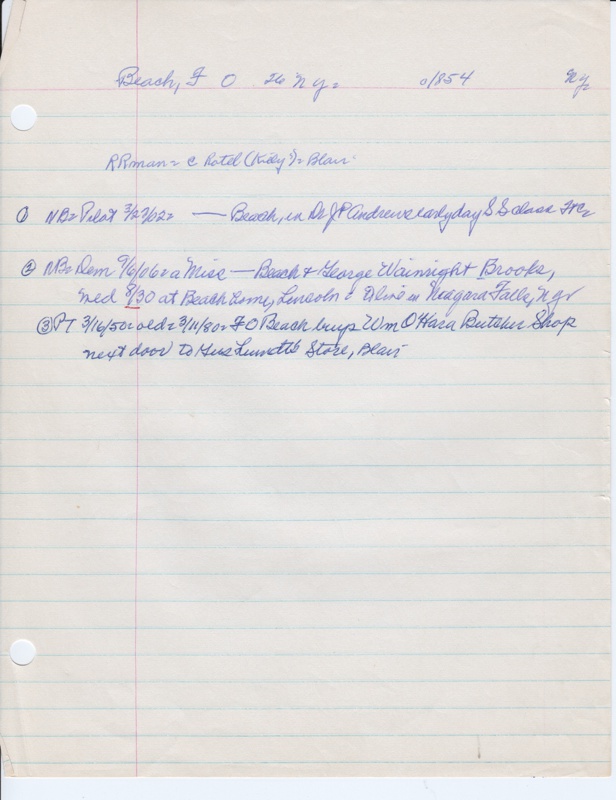 Beach, F O 26 N Y= 0/854 N.Y.
RRman = C Hotel (Kelly's) = Blair
① NB = Pilot 3/27/02 = — Beach, in Dr JP Andrews early day S S class
② NB = Dem 9/6/06 = a Misc — Beach & George Wainright Brooks,
wed 8/30 at Beach home, Lincoln & A live in Niagara Falls, N.Y.
③ PT 3/16/50 = old = 3/11/80 = F O Beach buys Wm O'Hara Butcher Shop
next door to Gus Lunetts Store, Blair